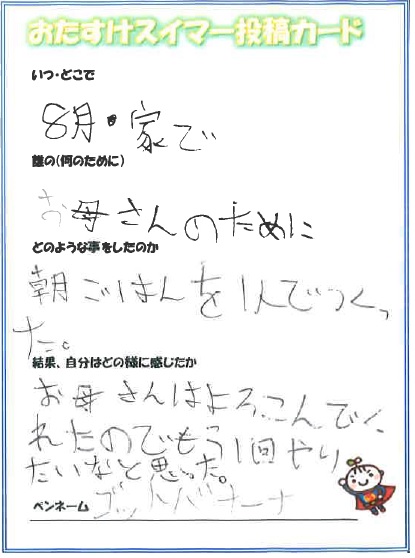 おたすけスイマー投稿カード
いつ・どこで
8月・家で
誰の(何のために)
お母さんのために
どのような事をしたのか
朝ごはんを1人でつくっ
た。
結果、自分はどの様に感じたか
お母さんはよろこんでく
れたのでもう1回やり
たいなと思った。
ペンネーム ゴットバナーナ